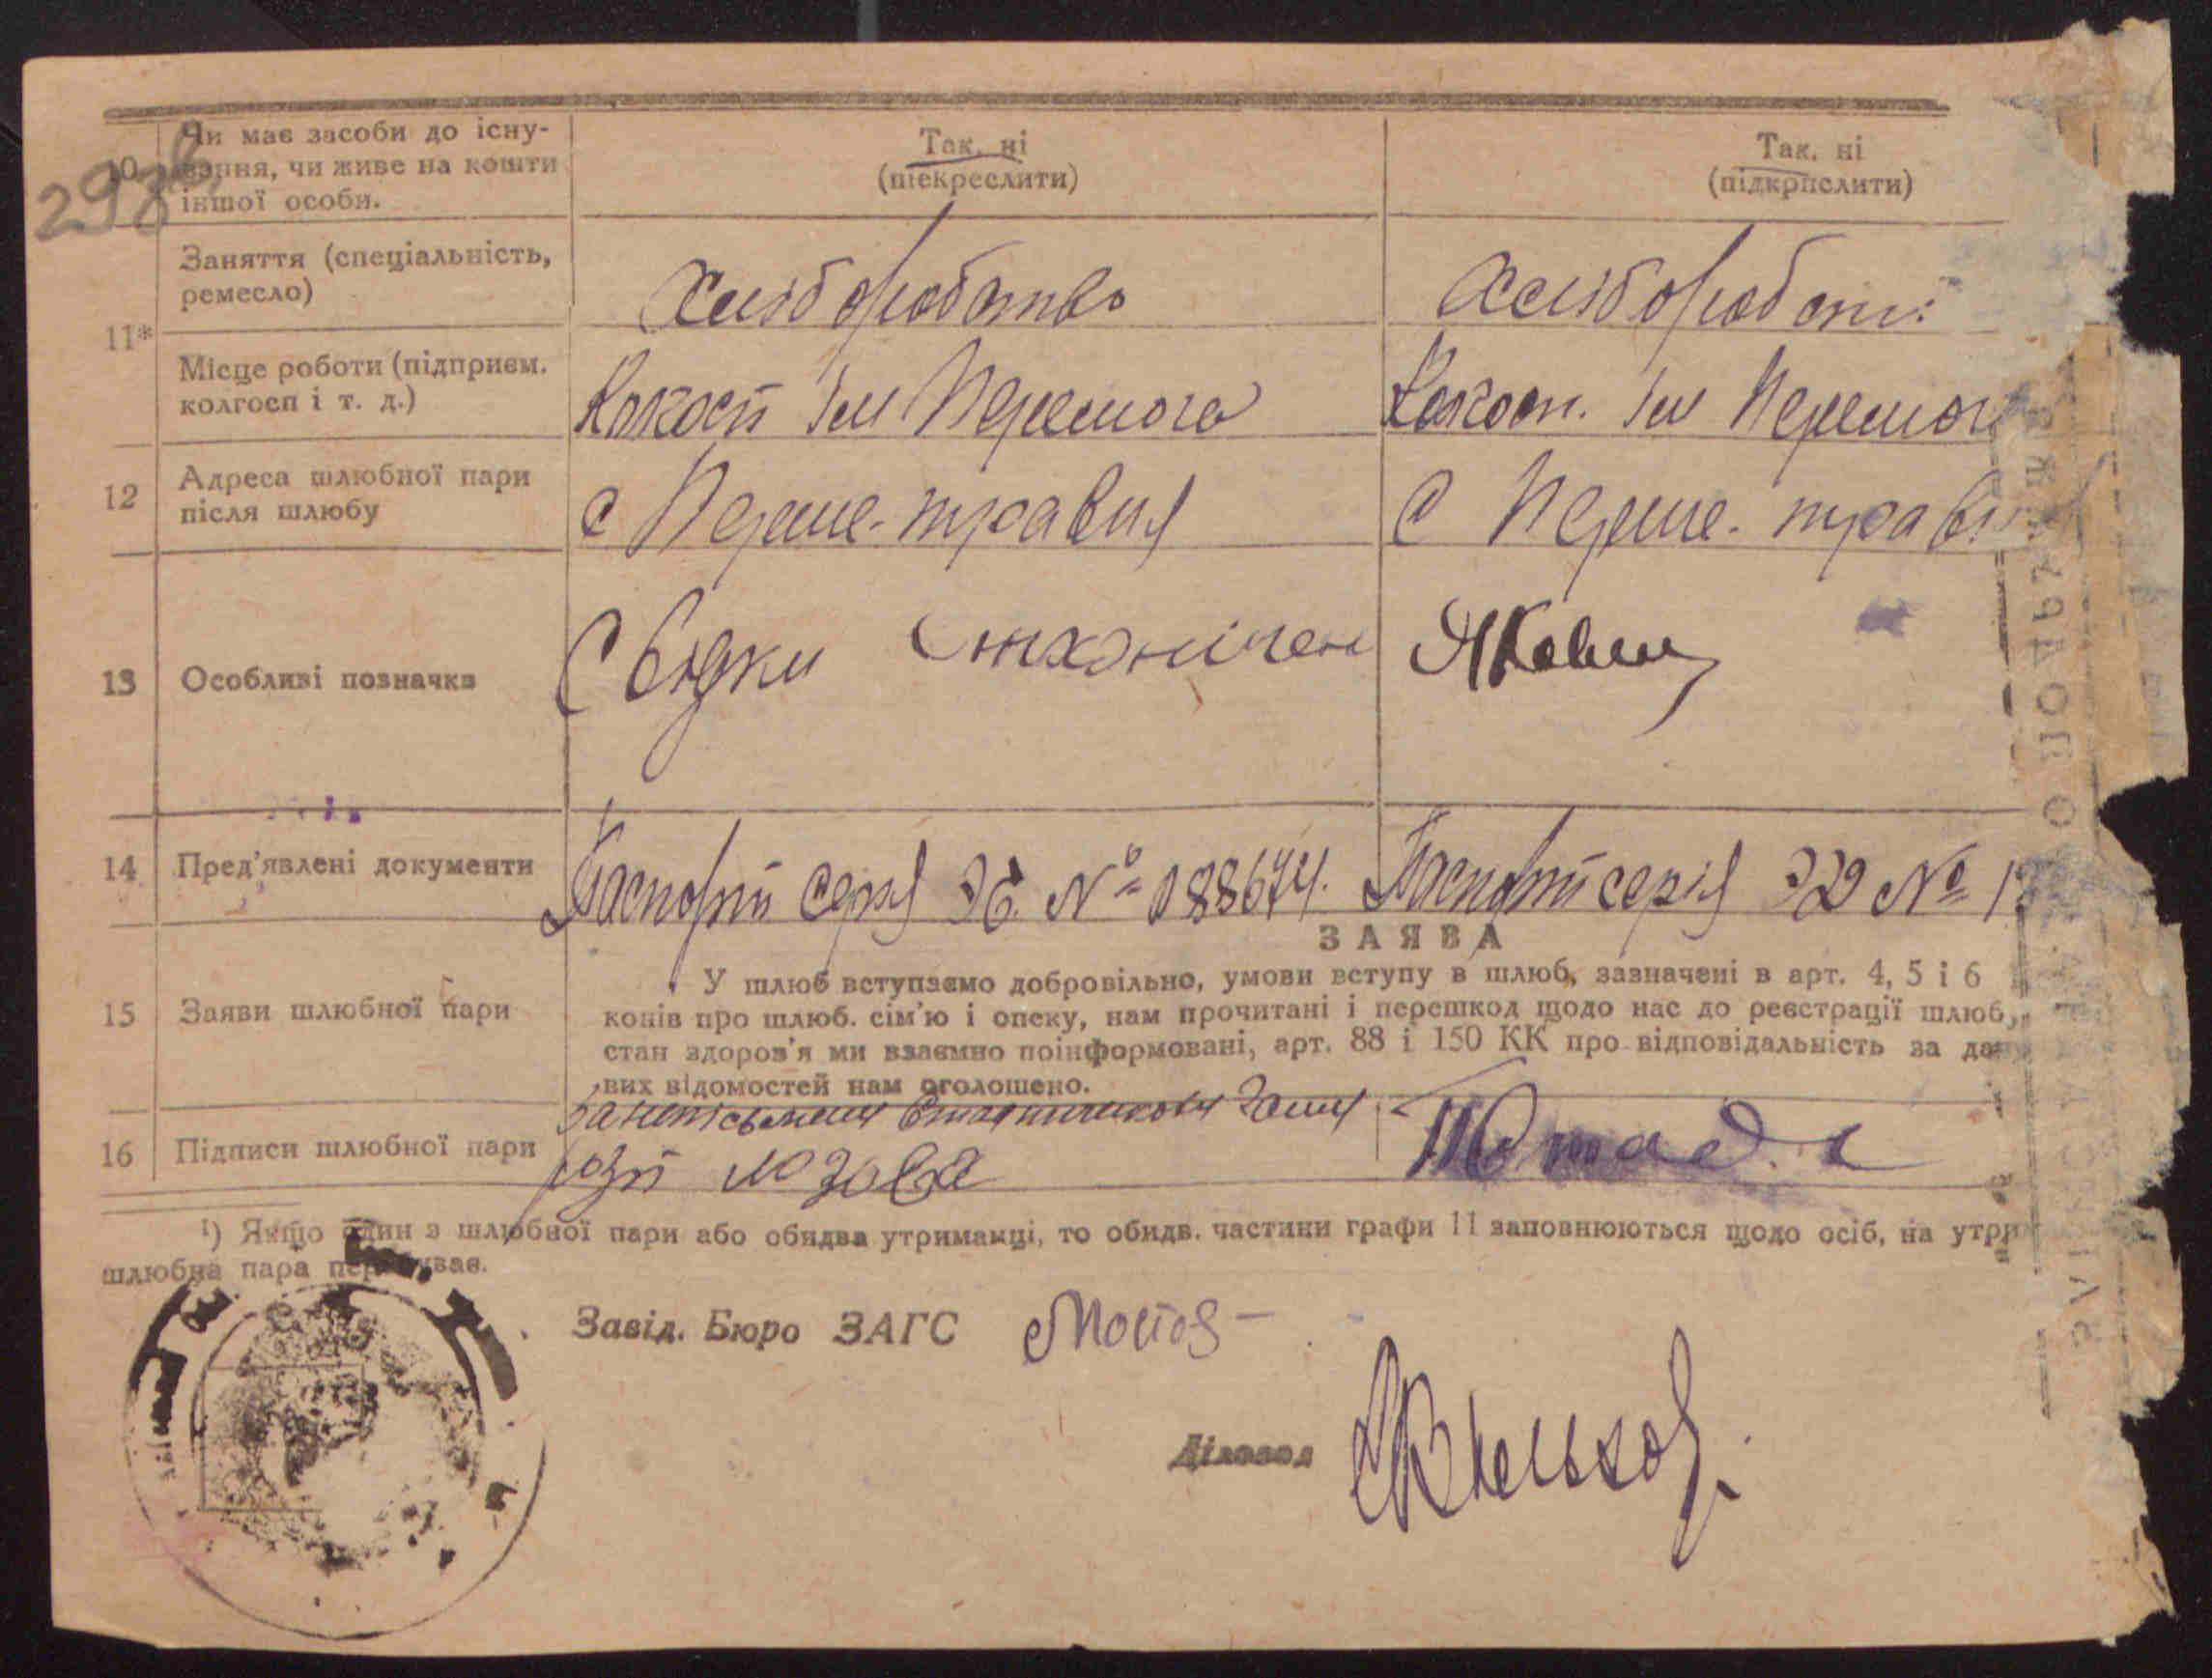 298
10 Чи має засоби до існу-
вання, чи живе на кошти
іншої особи.
Так, ні
(піекреслити)
Так, ні
(підкрпслити)
11*
Заняття (спеціальність,
ремесло)
Хліборобство
Хліборобст
Місце роботи (підприєм.
колгосп і т. д.)
Колгосп Ім Перемога
Колгосп. Ім Перемог
12 Адреса шлюбної пари
після шлюбу
с Перше-травня
с Перше-трав
13 Особливі позначки
Свідки
14 Пред'явлені документи
Паспорт серія ЭБ. № 088674.
Паспорт серія ЭД № 1
ЗАЯВА
15 Заяви шлюбної пари
У шлюб вступаємо добровільно, умови вступу в шлюб, зазначені в арт. 4, 5 і 6
конів про шлюб. сім'ю і опеку, нам прочитані і перешкод щодо нас до реєстрації шлюб
стан здоров'я ми взаємно поінформовані, арт. 88 і 150 КК про відповідальність за да
вих відомостей нам оголошено.
16 Підписи шлюбної пари
¹) Якщо один з шлюбної пари або обидва утриманці, то обидв. частини графи 11 заповнюються щодо осіб, на утри
шлюбна пара перебуває.
Завід. Бюро ЗАГС
Діловод